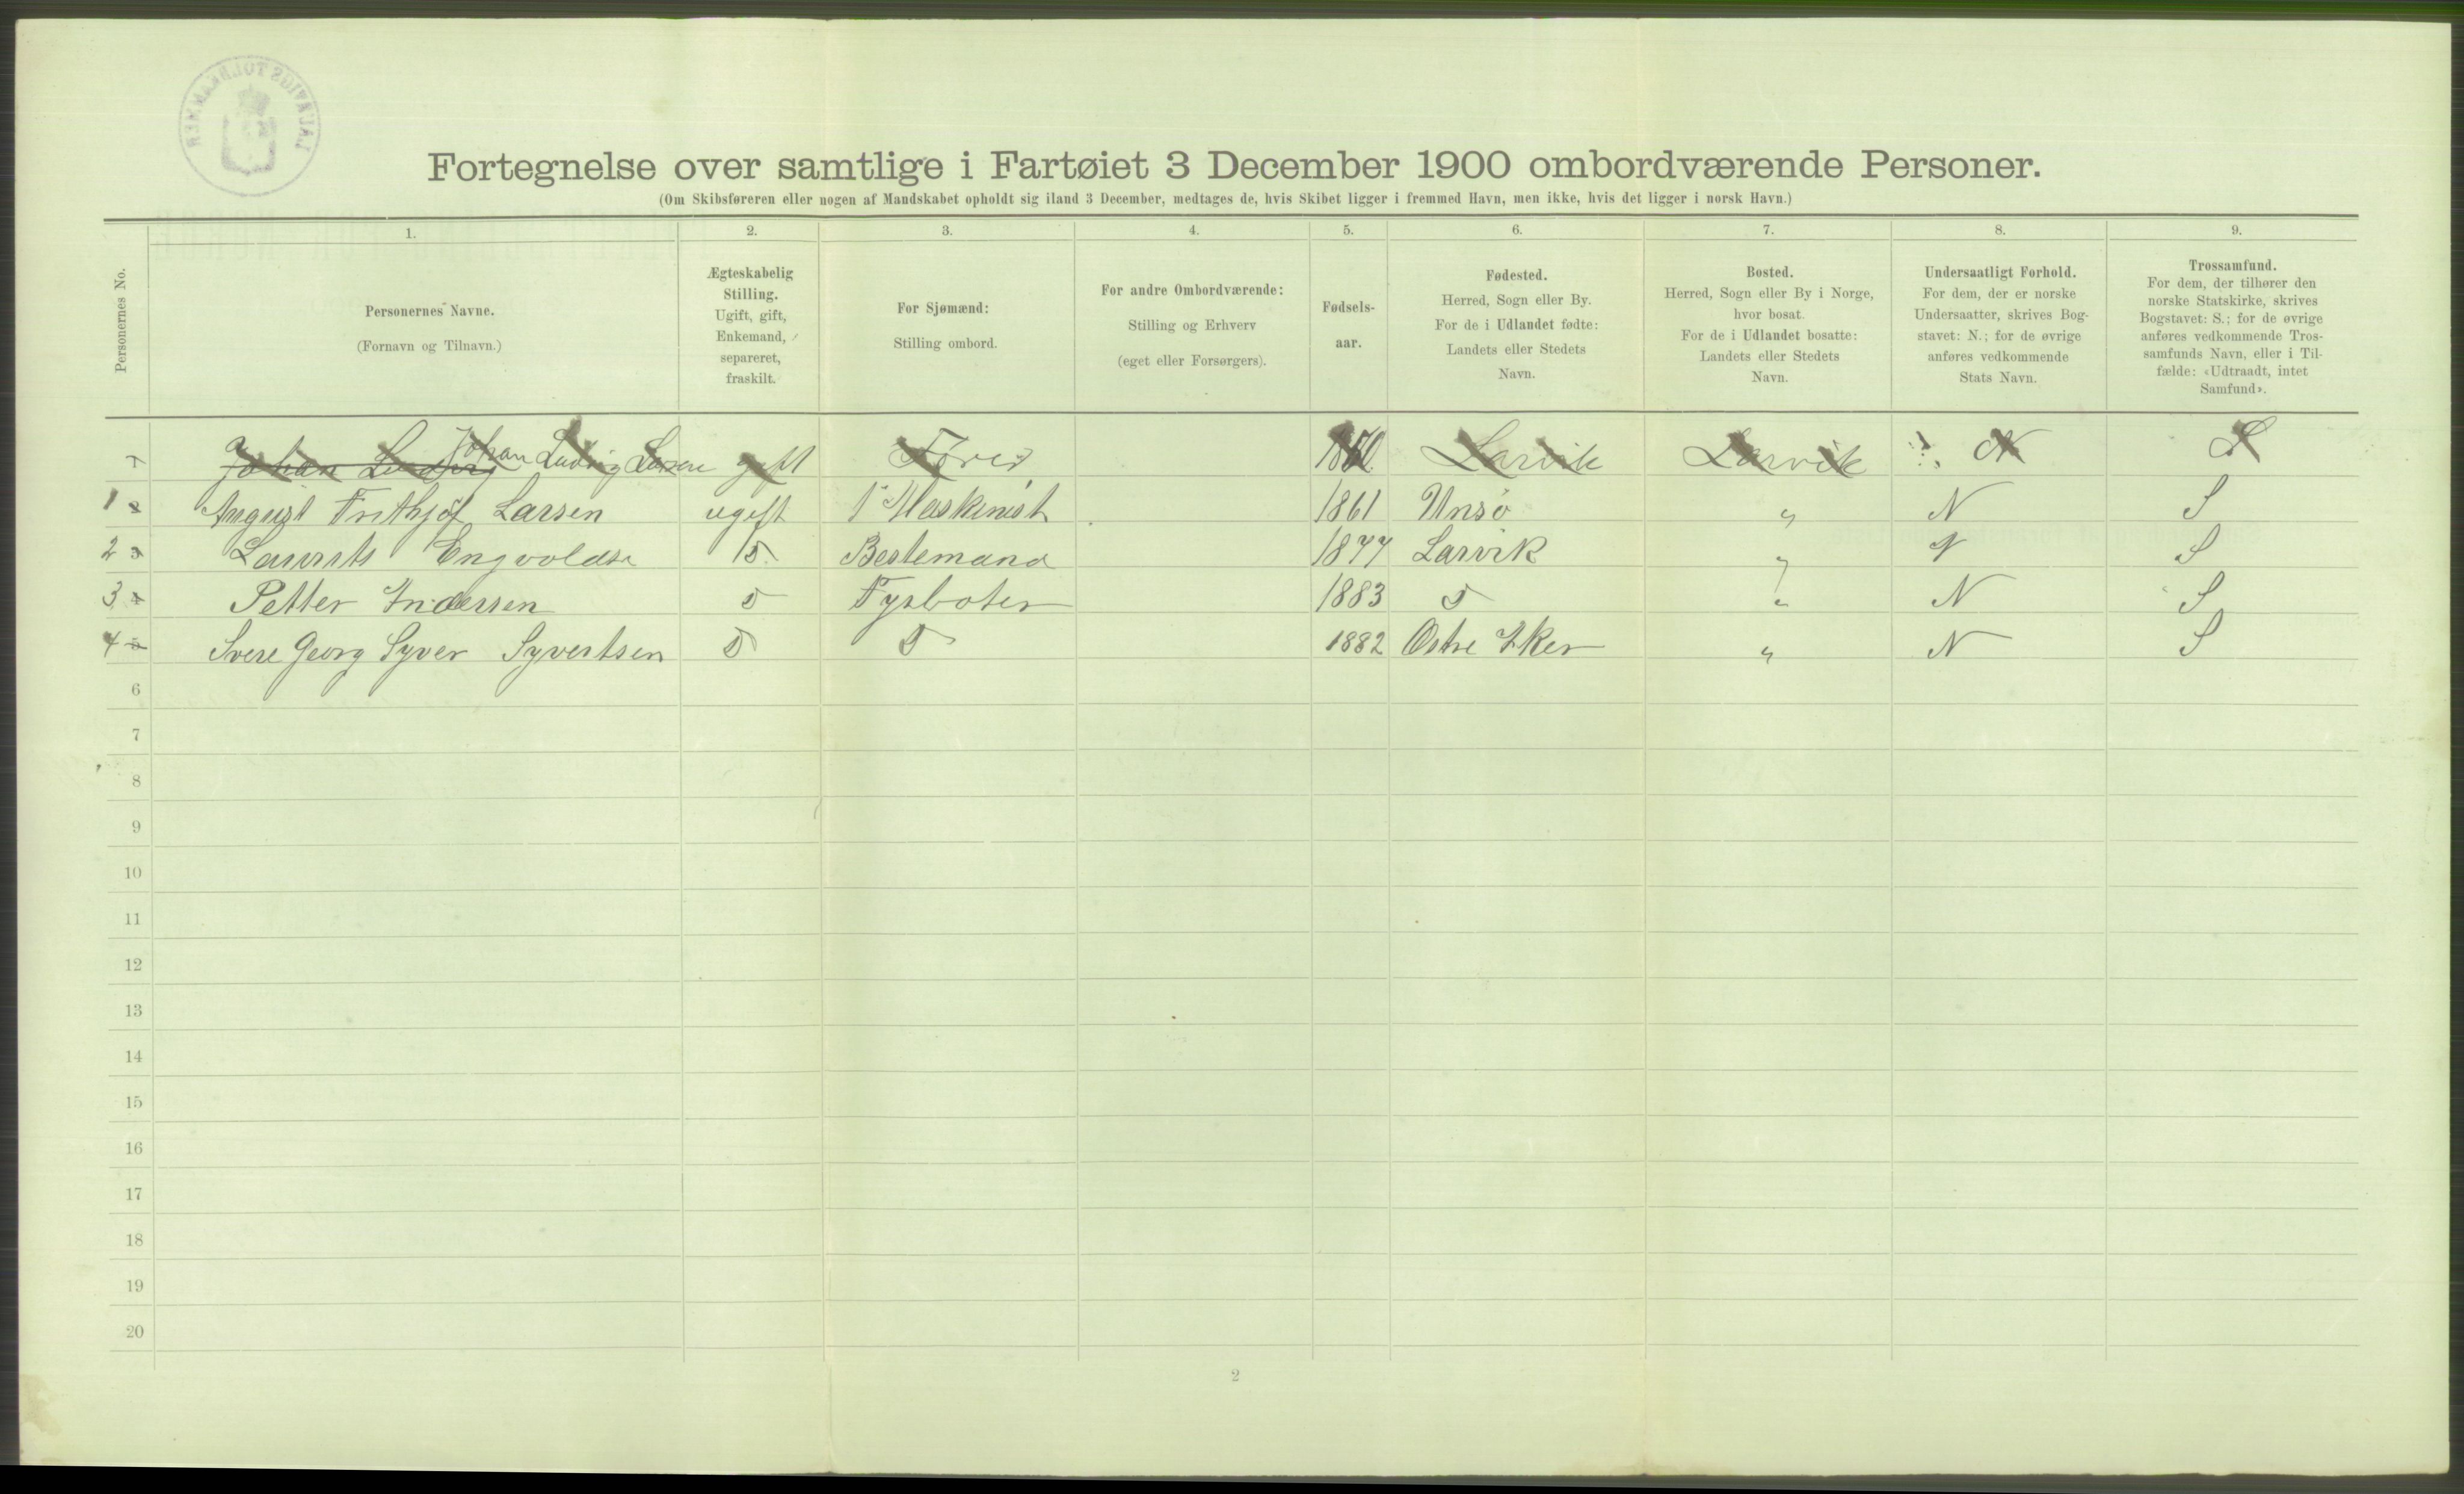 LAURVIGS TOLDKAMMER
Fortegnelse over samtlige i Fartøiet 3 December 1900 ombordværende Personer.
(Om Skibsføreren eller nogen af Mandskabet opholdt sig iland 3 December, medtages de, hvis Skibet ligger i fremmed Havn, men ikke, hvis det ligger i norsk Havn.)
Personernes No.
1.
Personernes Navne.
(Fornavn og Tilnavn.)
2.
Ægteskabelig
Stilling.
Ugift, gift,
Enkemand,
separeret,
fraskilt.
3.
For Sjømænd:
Stilling ombord.
4.
For andre Ombordværende:
Stilling og Erhverv
(eget eller Forsørgers).
5.
Fødsels-
aar.
6.
Fødested.
Herred, Sogn eller By.
For de i Udlandet fødte:
Landets eller Stedets
Navn.
7.
Bosted.
Herred, Sogn eller By i Norge,
hvor bosat.
For de i Udlandet bosatte:
Landets eller Stedets
Navn.
8.
Undersaatligt Forhold.
For dem, der er norske
Undersaatter, skrives Bog-
stavet: N.; for de øvrige
anføres vedkommende
Stats Navn.
9.
Trossamfund.
For dem, der tilhører den
norske Statskirke, skrives
Bogstavet: S.; for de øvrige
anføres vedkommende Tros-
samfunds Navn, eller i Til-
fælde: «Udtraadt, intet
Samfund».
1 Johan Ludvig Johan Ludvig Larsen gift Fører Larvik Larvik N S
1 2 August Frithjof Larsen ugift 1ˢ Maskinist 1861 Unsø " N S
2 3 Laurits Engvoldsen D. Bestemand 1877 Larvik " N S
3 4 Petter Andersen D Fyrbøter 1883 D " N S
4 5 Svere Georg Syver Syvertsen D D 1882 Østre Aker " N S
6
7
8
9
10
11
12
13
14
15
16
17
18
19
20
2